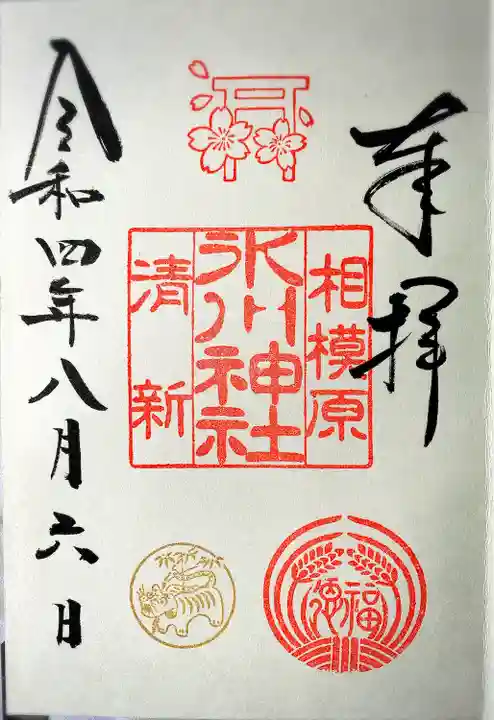 奉拝
相模原
氷川神社
清新
福徳
令和四年八月六日